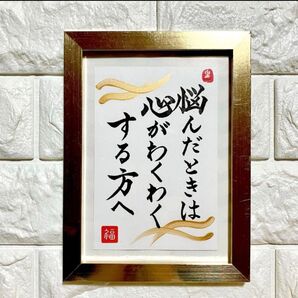 悩んだときは
心がわくわく
する方へ
福